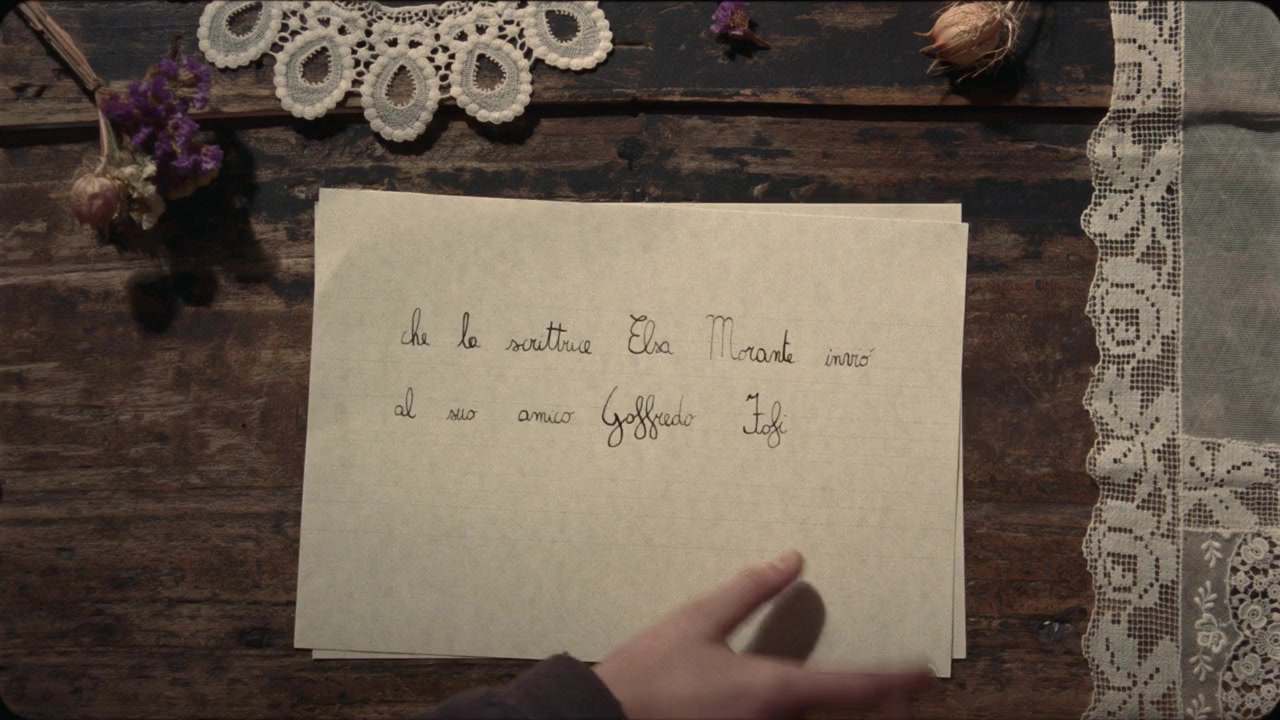 che la scrittrice Elsa Morante inviò
al suo amico Goffredo Fofi